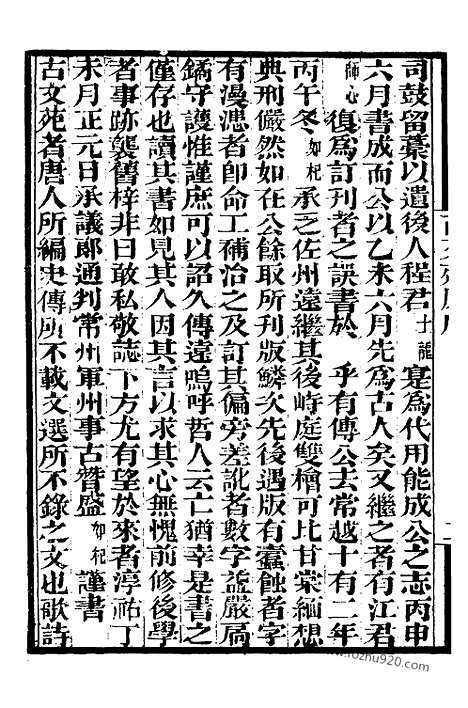 司鼓留藁以遺後人程君士龍寔為代用能成公之志丙申
六月書成而公以乙未六月先為古人矣又繼之者有江君
師心復為訂刊者之誤書於 乎有傳公去常越十有二年
丙午冬如杞承乏佐州遠繼其後峙庭雙檜可比甘棠緬想
典刑儼然如在公餘取所刊版鱗次先後遇版有蠹蝕者字
有漫漶者即命工補治之及訂其偏旁差訛者數字益嚴扃
鐍守護惟謹庶可以詔久傳遠嗚呼哲人云亡猶幸是書之
僅存也讀其書如見其人因其言以求其心無愧前修後學
者事跡襲舊梓非曰敢私敬誌下方尤有望於來者淳祐丁
未月正元日承議郎通判常州軍州事古贊盛如杞謹書
古文苑者唐人所編史傳所不載文選所不錄之文也歌詩
www.rozhu920.com